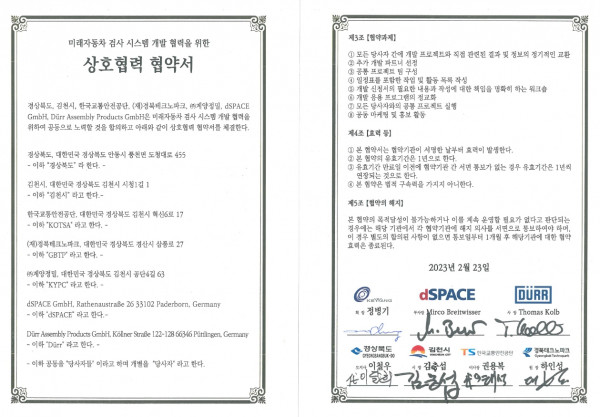 미래자동차 검사 시스템 개발 협력을 위한
상호협력 협약서
경상북도, 김천시, 한국교통안전공단, (재)경북테크노파크, ㈜계양정밀, dSPACE
GmbH, Dürr Assembly Products GmbH은 미래자동차 검사 시스템 개발 협력을
위하여 공동으로 노력할 것을 합의하고 아래와 같이 상호협력 협약서를 체결한다.
경상북도, 대한민국 경상북도 안동시 풍천면 도청대로 455
- 이하 "경상북도" 라 한다. -
김천시, 대한민국 경상북도 김천시 시청1길 1
- 이하 "김천시" 라고 한다. -
한국교통안전공단, 대한민국 경상북도 김천시 혁신6로 17
- 이하 "KOTSA" 라고 한다. -
(재)경북테크노파크, 대한민국 경상북도 경산시 삼풍로 27
- 이하 "GBTP" 라고 한다. -
㈜계양정밀, 대한민국 경상북도 김천시 공단4길 63
- 이하 "KYPC" 라고 한다. -
dSPACE GmbH, Rathenaustraße 26 33102 Paderborn, Germany
- 이하 "dSPACE" 라고 한다. -
Dürr Assembly Products GmbH, Köllner Straße 122-128 66346 Püttlingen, Germany
- 이하 "Dürr" 라고 한다. -
- 이하 공동을 "당사자들" 이라고 하며 개별을 "당사자" 라고 한다. -
제3조 [협약과제]
① 모든 당사자 간에 개발 프로젝트와 직접 관련된 결과 및 정보의 정기적인 교환
② 추가 개발 파트너 선정
③ 공통 프로젝트 팀 구성
④ 일정표를 포함한 작업 및 활동 목록 작성
⑤ 개발 신청서의 필요한 내용과 작성에 대한 책임을 명확히 하는 워크숍
⑥ 개발 응용 프로그램의 정교화
⑦ 모든 당사자와의 공통 프로젝트 실행
⑧ 공동 마케팅 및 홍보 활동
제4조 [효력 등]
① 본 협약서는 협약기관이 서명한 날부터 효력이 발생한다.
② 본 협약의 유효기간은 1년으로 한다.
③ 유효기간 만료일 이전에 협약기관 간 서면 통보가 없는 경우 유효기간은 1년씩
연장되는 것으로 한다.
④ 본 협약은 법적 구속력을 가지지 아니한다.
제5조 [협약의 해지]
본 협약의 목적달성이 불가능하거나 이를 계속 운영할 필요가 없다고 판단되는
경우에는 해당 기관에서 각 협약기관에 해지 의사를 서면으로 통보하여야 하며,
이 경우 별도의 합의된 사항이 없으면 통보일부터 1개월 후 해당기관에 대한 협약
효력은 종료된다.
2023년 2월 23일
dSPACE DÜRR
회장 정병기 부사장 Mirco Breitwisser 사장 Thomas Kolb
경상북도 김천시 TS 한국교통안전공단 경북테크노파크
도지사 이철우 시장 김충섭 이사장 권용복 원장 하인성